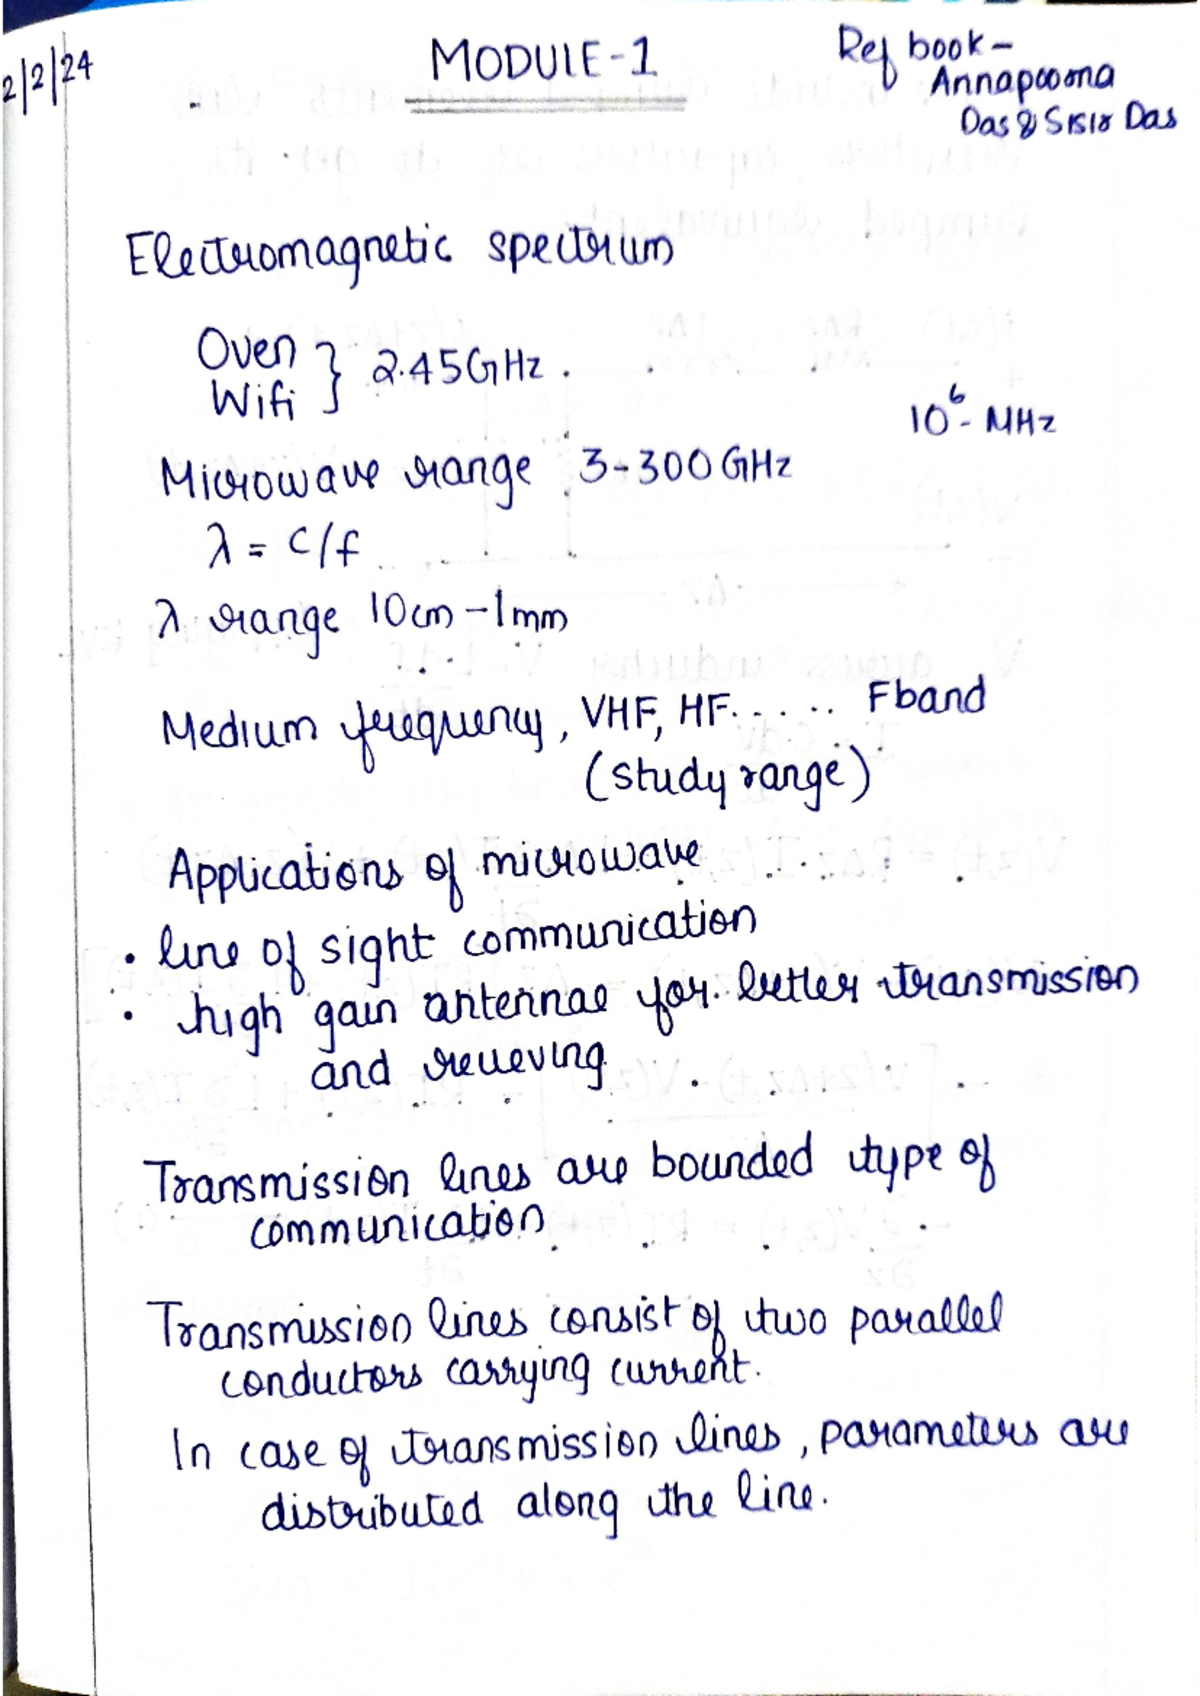 2/2/24
MODULE-1
Ref book -
Annapoorna
Das & Sisir Das
Electromagnetic spectrum
Oven
Wifi } 2.45GHz.
10⁶ - MHz
Microwave range 3-300 GHz
λ = c/f
λ range 10cm - 1mm
Medium frequency, VHF, HF. . . . . . F band
(study range)
Applications of microwave
• line of sight communication
• high gain antennae for better transmission
and recieving
Transmission lines are bounded type of
communication
Transmission lines consist of two parallel
conductors carrying current.
In case of transmission lines, parameters are
distributed along the line.